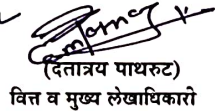 (दत्तात्रय पाथरुट)
वित्त व मुख्य लेखाधिकारो